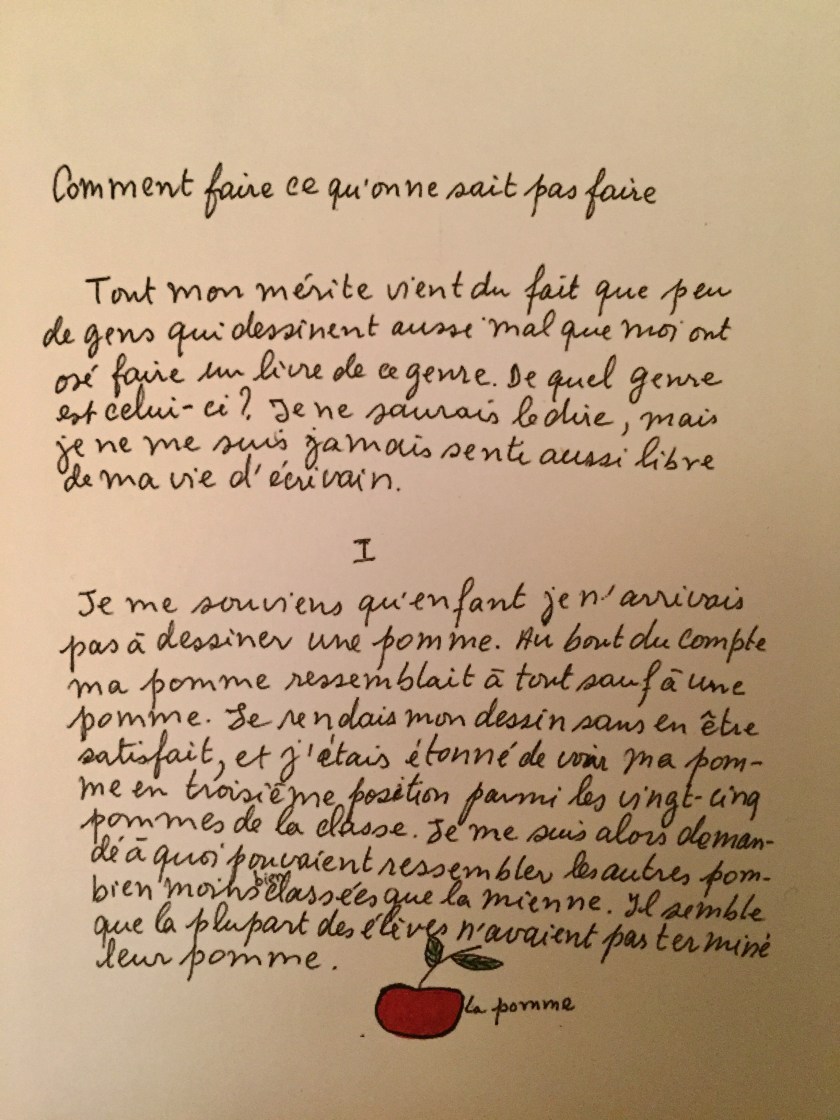 Comment faire ce qu'on ne sait pas faire
Tout mon mérite vient du fait que peu
de gens qui dessinent aussi mal que moi ont
osé faire un livre de ce genre. De quel genre
est celui-ci? Je ne saurais le dire, mais
je ne me suis jamais senti aussi libre
de ma vie d'écrivain.
I
Je me souviens qu'enfant je n'arrivais
pas à dessiner une pomme. Au bout du compte
ma pomme ressemblait à tout sauf à une
pomme. Je rendais mon dessin sans en être
satisfait, et j'étais étonné de voir ma pom-
me en troisième position parmi les vingt-cinq
pommes de la classe. Je me suis alors deman-
dé à quoi pouvaient ressembler les autres pom-
bien moins bien classées que la mienne. Il semble
que la plupart des élèves n'avaient pas terminé
leur pomme.
La pomme